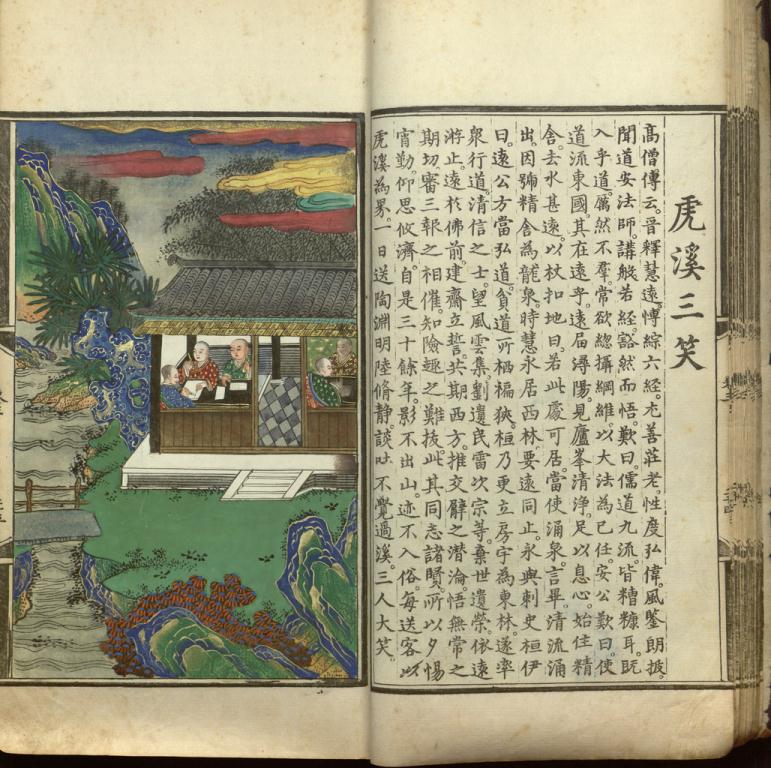 虎溪三笑
高僧傳云。晋釋慧遠。博綜六經。尤善莊老。性度弘偉。風鑒朗拔。
聞道安法師。講般若經。豁然而悟。歎曰。儒道九流。皆糟糠耳。旣
入乎道。厲然不羣。常欲緫攝綱維。以大法為己任。安公歎曰。使
道流東國。其在遠乎。遠届潯陽。見廬峯清淨。足以息心。始住精
舍。去水甚遠。以杖扣地曰。若此處可居。當使涌泉。言畢。清流涌
出。因號精舍為龍泉。時慧永居西林。要遠同止。永與刺史桓伊
曰。遠公方當弘道。貧道所栖褊狹。桓乃更立房宇為東林。遂率
衆行道。清信之士。望風雲集。劉遺民雷次宗等。棄世遺榮。依遠
遊止。遠於佛前。建齋立誓。共期西方。推交臂之潜淪。悟無常之
期切。審三報之相催。知險趣之難拔。此其同志諸賢。所以夕惕
宵勤。仰思攸濟。自是三十餘年。影不出山。迹不入俗。每送客。以
虎溪為界。一日送陶淵明陸脩静。談吐不覺過溪。三人大笑。